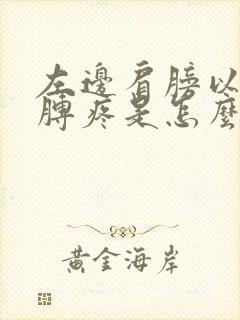 左邊肩膀以
膊疼是怎麼
黃金海岸